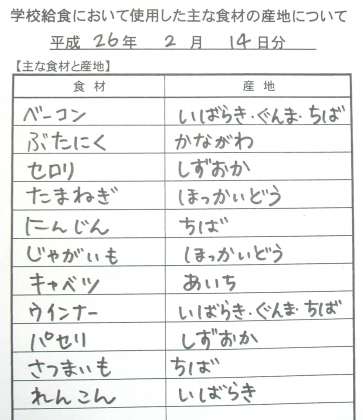 学校給食において使用した主な食材の産地について
平成 26年 2 月 14日分
【主な食材と産地】
食材 産地
ベーコン いばらき・ぐんま・ちば
ぶたにく かながわ
セロリ しずおか
たまねぎ ほっかいどう
にんじん ちば
じゃがいも ほっかいどう
キャベツ あいち
ウインナー いばらき・ぐんま・ちば
パセリ しずおか
さつまいも ちば
れんこん いばらき